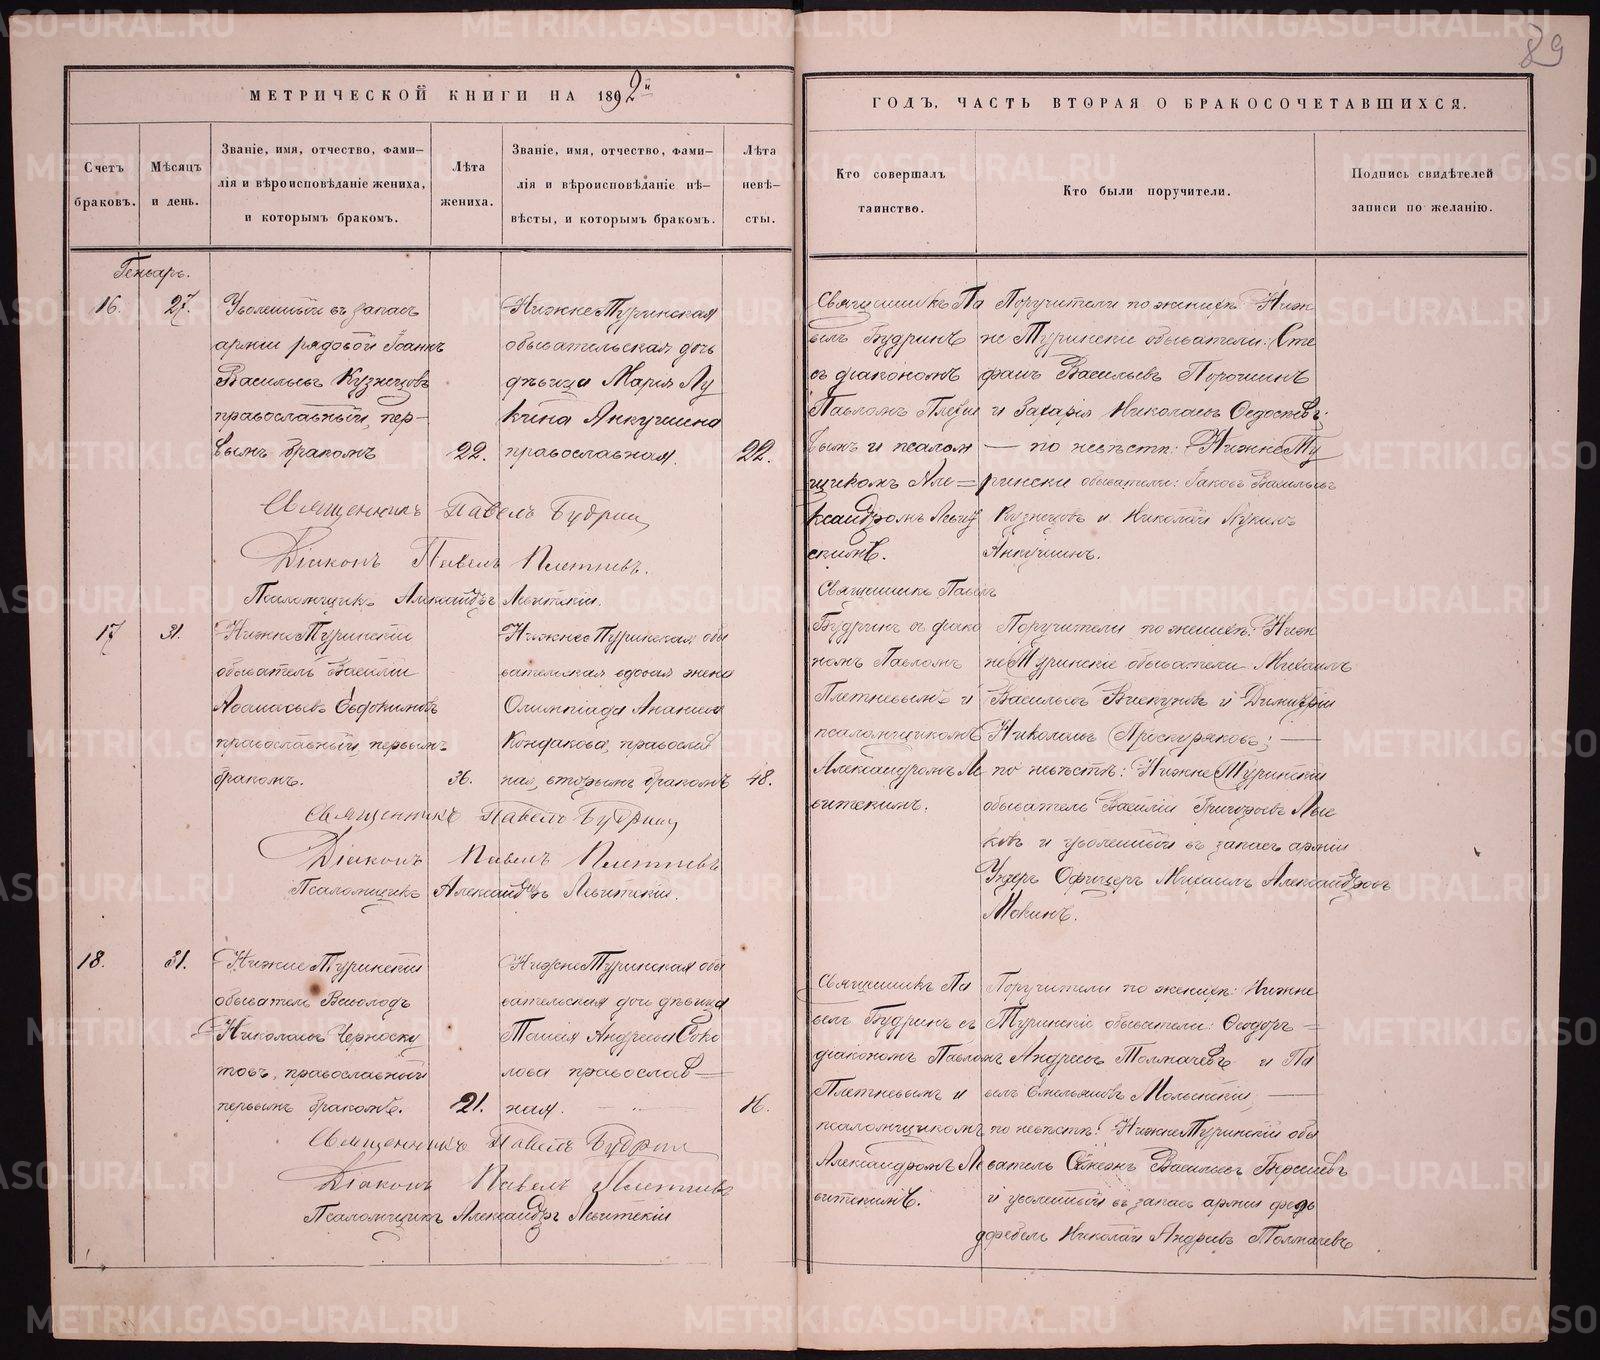 89
МЕТРИЧЕСКОЙ КНИГИ НА 1892й
ГОДЪ, ЧАСТЬ ВТОРАЯ О БРАКОСОЧЕТАВШИХСЯ.
Счетъ браковъ.
Мѣсяцъ и день.
Званіе, имя, отчество, фами-
лія и вѣроисповѣданіе жениха,
и которымъ бракомъ.
Лѣта
жениха.
Званіе, имя, отчество, фами-
лія и вѣроисповѣданіе не-
вѣсты, и которымъ бракомъ.
Лѣта
невѣ-
сты.
Кто совершалъ
таинство.
Кто были поручители.
Подпись свидѣтелей
записи по желанію.
Генварь.
16.
27.
Уволенный въ запасъ
арміи рядовой Іоаннъ
Васильевъ Кузнецовъ
православный, пер-
вымъ бракомъ
22.
НижнеТуринская
обывательская дочь
дѣвица Марія Лу
кина Анкушина
православная.
22.
Священникъ Па
велъ Будринъ
съ діакономъ
Павломъ Плетне
вымъ и псалом
щикомъ Але=
ксандромъ Левит
скимъ.
Поручители по женихѣ: Ниж
не Туринскіе обыватели: Сте
фанъ Васильевъ Порошинъ
и Захарія Николаевъ Федосѣевъ;
— по невѣстѣ: НижнеТу
ринскіе обыватели: Іаковъ Васильевъ
Кузнецовъ и Николай Лукинъ
Анкушинъ.
Священникъ Павелъ Будринъ
Діаконъ Павелъ Плетневъ.
Псаломщикъ Александръ Левитскій.
17
31.
НижнеТуринскій
обыватель Василій
Аѳанасьевъ Евдокимовъ
православный, первымъ
бракомъ.
36.
НижнеТуринская обы
вательская вдовая жена
Олимпіада Ананіева
Кондакова, православ
ная, вторымъ бракомъ
48.
Священникъ Павелъ
Будринъ съ діако
номъ Павломъ
Плетневымъ и
псаломщикомъ
Александромъ Ле
витскимъ.
Поручители по женихѣ: Ниж
неТуринскіе обыватели Михаилъ
Васильевъ и Димитрій
Николаевъ Проскуряковъ; —
по невѣстѣ: НижнеТуринскій
обыватель Василій Григорьевъ Лыс
ковъ и уволенный въ запасъ арміи
Унтеръ Офицеръ Михаилъ Александровъ
Мокинъ.
Священникъ Павелъ Будринъ
Діаконъ Павелъ Плетневъ
Псаломщикъ Александръ Левитскій.
18.
31.
НижнеТуринскій
обыватель Всеволодъ
Николаевъ Черноску
товъ, православный
первымъ бракомъ.
21.
НижнеТуринская обы
вательская дочь дѣвица
Таисія Андреева Соко
лова православ—
ная.
16.
Священникъ Па
велъ Будринъ съ
діакономъ Павломъ
Плетневымъ и
псаломщикомъ
Александромъ Ле
витскимъ.
Поручители по женихѣ: Нижне
Туринскіе обыватели: Ѳеодоръ =
Андреевъ Толмачевъ и Па
велъ Емельяновъ —
по невѣстѣ: НижнеТуринскій обы
ватель Васильевъ
и уволенный въ запасъ арміи фельд
фебель Николай Андреевъ Толмачевъ
Священникъ Павелъ Будринъ
Діаконъ Павелъ Плетневъ
Псаломщикъ Александръ Левитскій
METRIKI.GASO-URAL.RU